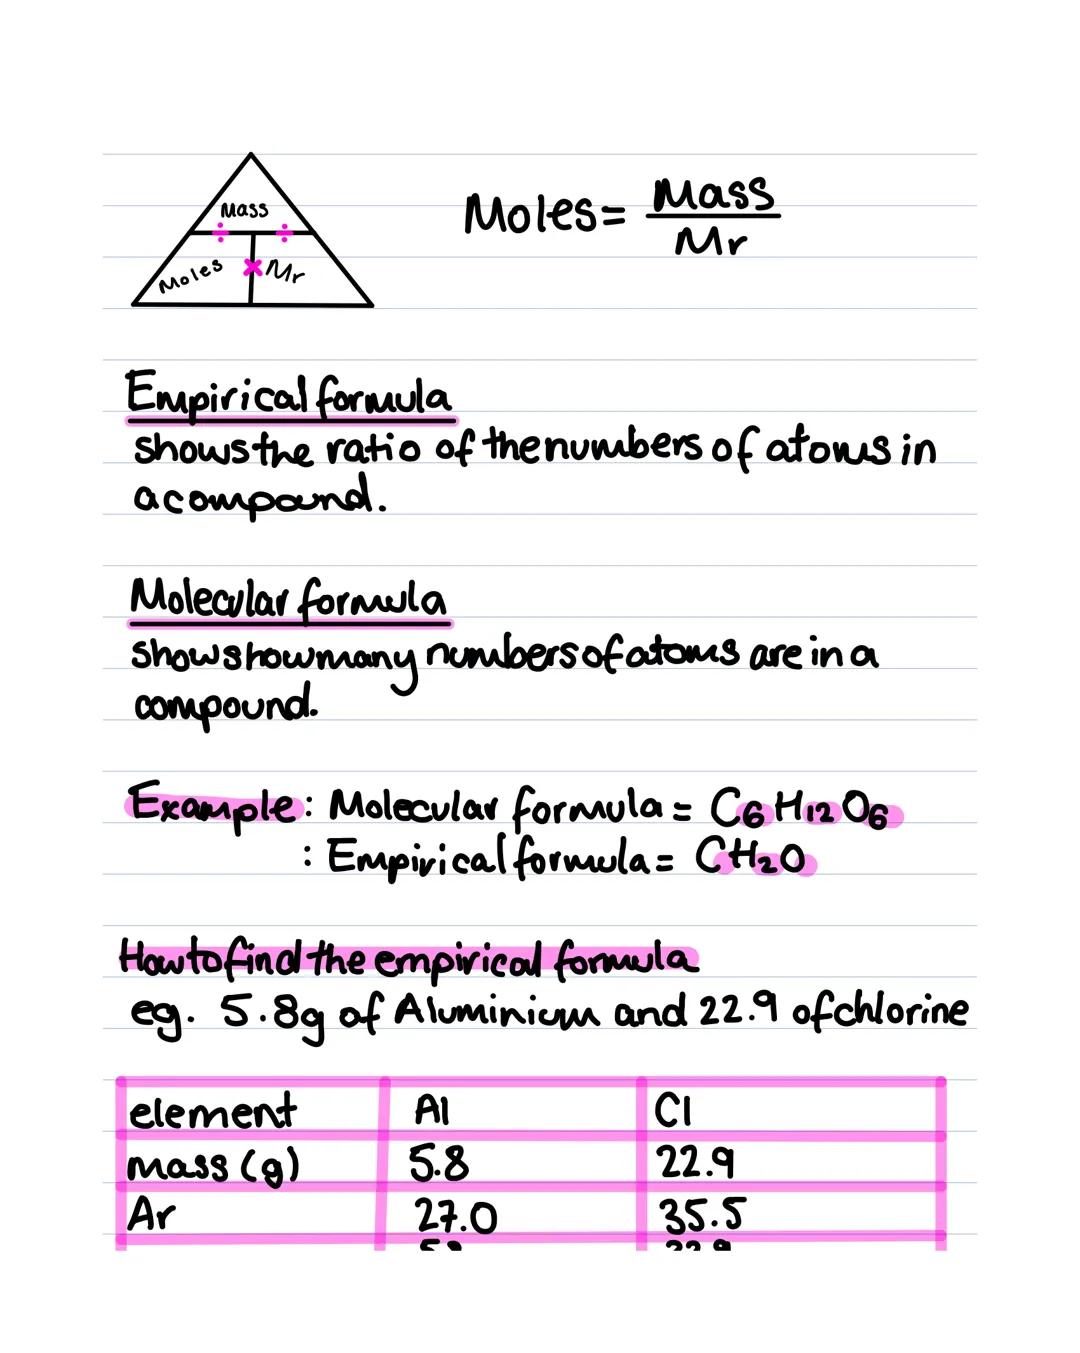 Mass
÷ ÷
Moles × Mr
Moles = Mass
Mr
Empirical formula
shows the ratio of the numbers of atoms in
a compound.
Molecular formula
shows how many numbers of atoms are in a
compound.
Example : Molecular formula = C6H12O6
: Empirical formula = CH2O
How to find the empirical formula
eg. 5.8g of Aluminium and 22.9 of chlorine
element Al Cl
mass (g) 5.8 22.9
Ar 27.0 35.5